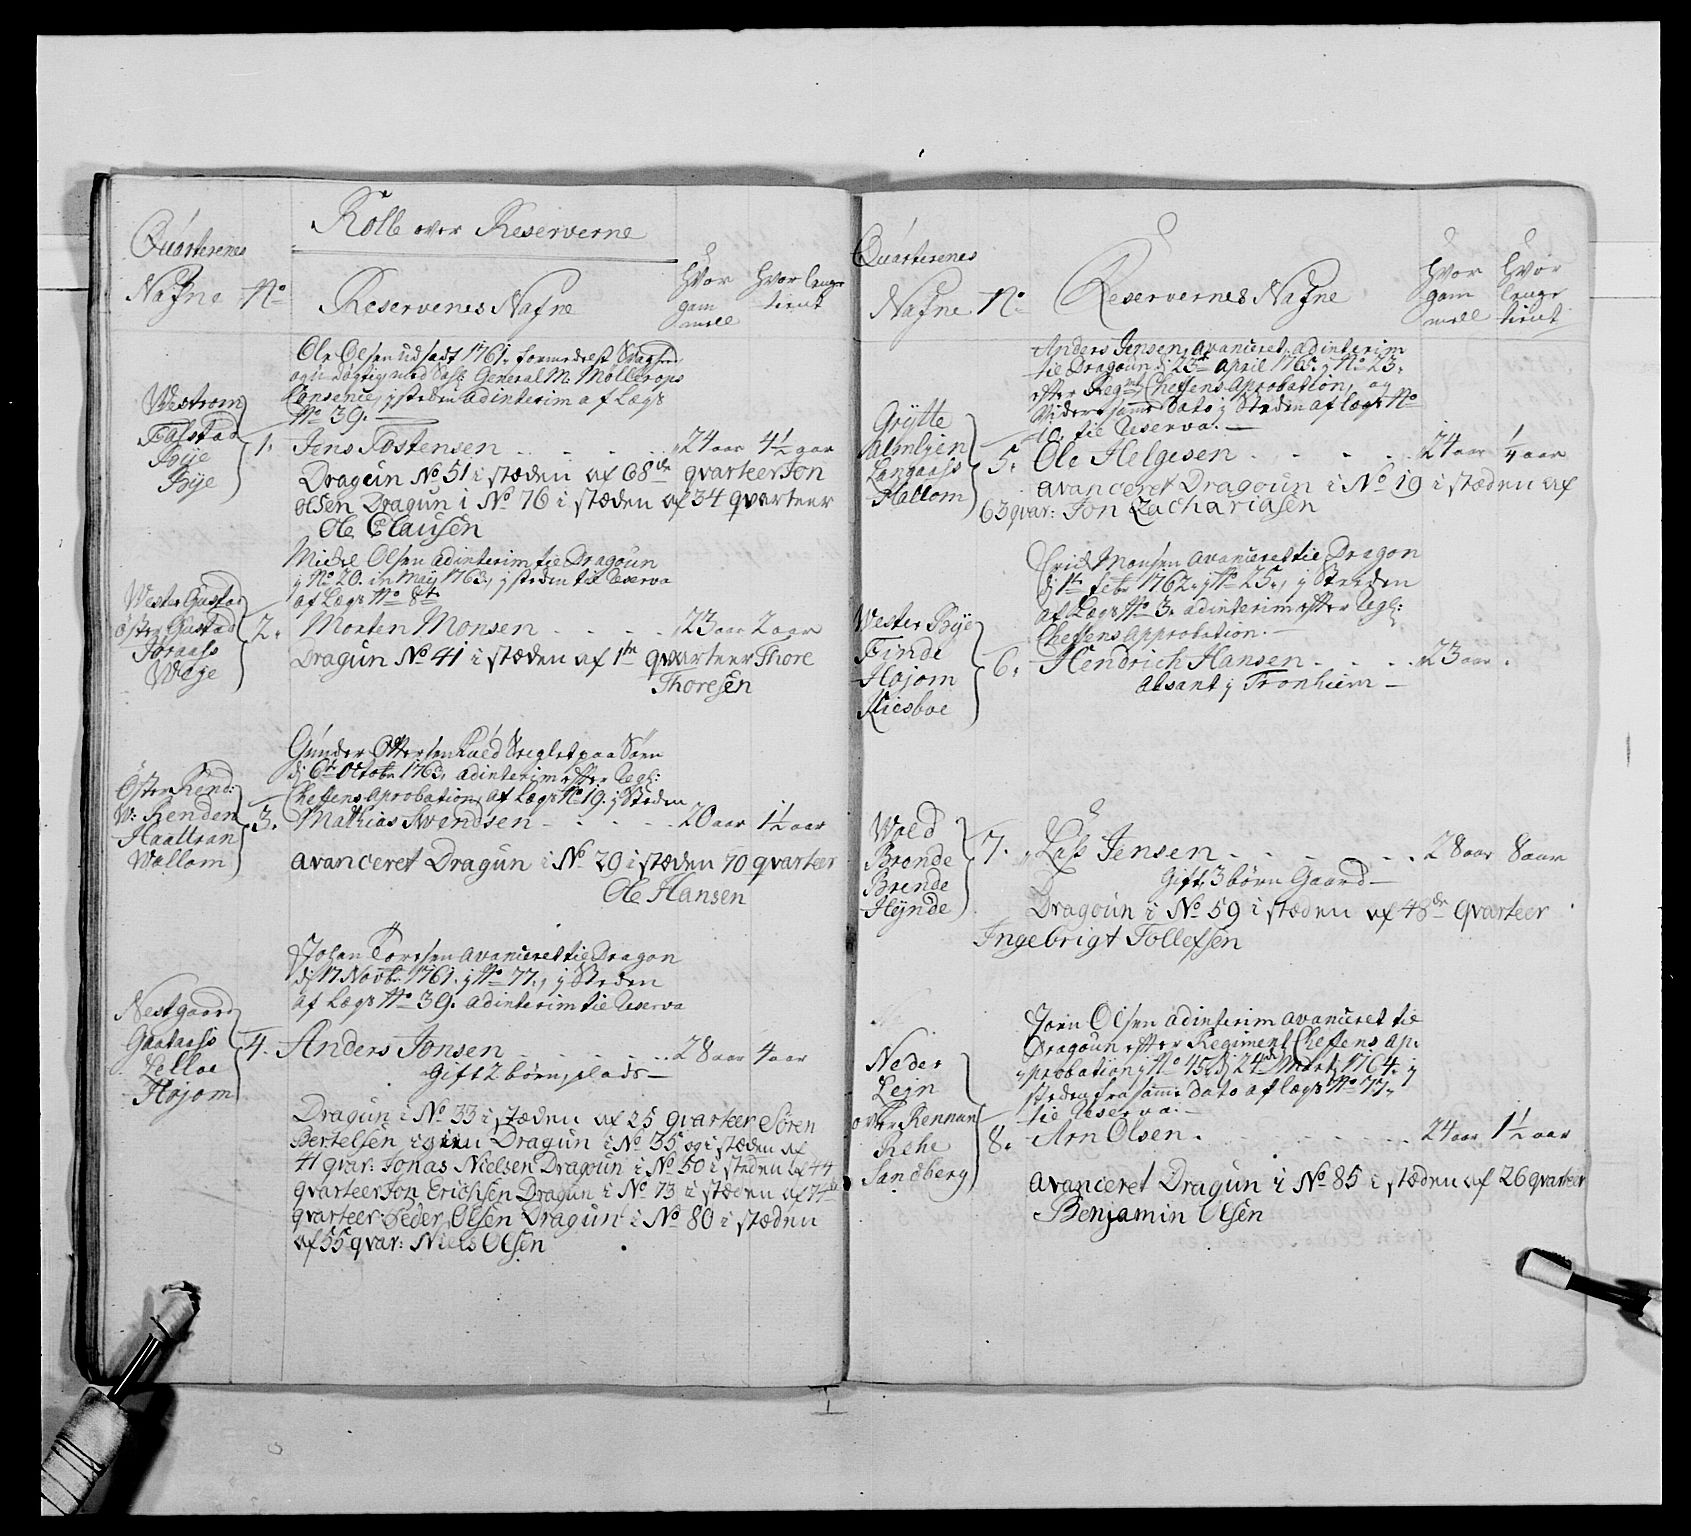 Rolle over Reserverne
Quarterenes
Nafne No Reservenes Nafne hvor gam mell hvor lenge tient
Ole Olsen udsadt 1761, formedelst Svaghed
og udygtig med Sal: General M: Möllerops
Consence, i steden adinterim af Lægs
No 39.
Westrom
Falstad
Bÿe
Bÿe
1. Jens Tostensen 24 aar 4½ aar
Dragun No 51 i stæden af 68de qvarteer Jon
olsen Dragun i No 76 i stæden af 34 qvarteer
Ole Clausen
Michel Olsen adinterim til Dragoun
i No 20. in Maij 1763, i steden til Reserva
af Lægs No 8te
Wester Gustad
öster Gustad
Joraass
Weye
2. Morten Monsen 23 aar 2 aar
Dragun No 41 i stæden af 1te qvarteer Thore
Thoresen
Gunder Ottersen Vald Seiglet paa Søen
d 6te Octobr 1763, adinterim effter Regl:
Cheffens aprobation, af Lægs No 19. i Steden
Öster Rend:
W: Renden
Haaltran
Wallom
3. Mathias Svendsen 20 aar 1½ aar
avanceret Dragun i No 29 i stæden 70 qvarteer
Ole Hansen
Johan Toresen avanceret til Dragon
d 17 Novbr 1761. i No 77., i Steden
af Lægs No 39. adinterim til Reserva
Nestgaard
Gaataass
Velloe
Højom
4. Anders Jonsen 28 aar 4 aar
Gift 2 børn, plads
Dragun i No 33 i stæden af 25 qvarteer Sören
Bertelsen igien Dragun i No 35 og i stæden af
41 qvar: Jonas Nielsen Dragoun i No 50 i steden af 44
qvarteer Jon Erichsen Dragun i No 73 i stæden af 74de
qvarteer Peder Olsen Dragun i No 80 i stæden
af 55 qvar: Niels Olsen
Quarterenes
Nafne No Reservernes Nafne hvor gam mell hvor lenge tient
Anders Jensen, avanceret, adinterim
til Dragoun d 23de April 1765. i No 23.
effter Regmt Cheffens Aprobation, og
Vider samme Dato i Steden af lægs No
10. til Reserva.
Grÿtte
Almlien
Langaass
Hallom
5. Ole Helgesen 24 aar ¼ aar
avanceret Dragoun i No 19 i stæden af
63 qvar: Jon Zachariasen
Erick Monsen avanceret til Dragon
d 1te Febr 1762. i No 25., i Steden
af Lægs No 3. adinterim effter Regl:
Cheffens Approbation.
Vester Bÿe
Tinde
Høiom
Miesboe
6. Hendrich Hansen 23 aar
absant i Tronhiem
Wold
Bronde
Brende
Hÿnde
7. Lass Jensen 28 aar 8 aar
Gift 3 børn Gaard
Dragoun i No 59 i stæden af 48de qvarteer
Ingebrigt Tollefsen
Jørn Olsen adinterim avanceret til
Dragoun effter Regiment Cheffens ap:
probation i No 45. d 24de Martj 1764. i
steden fra samme Dato af lægs No 77.
til Reserva.
Neder
Lejn
over Rennan
Rehe
Sandberg
8. Arn Olsen 24 aar 1½ aar
avanceret Dragun i No 85 i stæden af 26 qvarteer
Benjamin Olsen